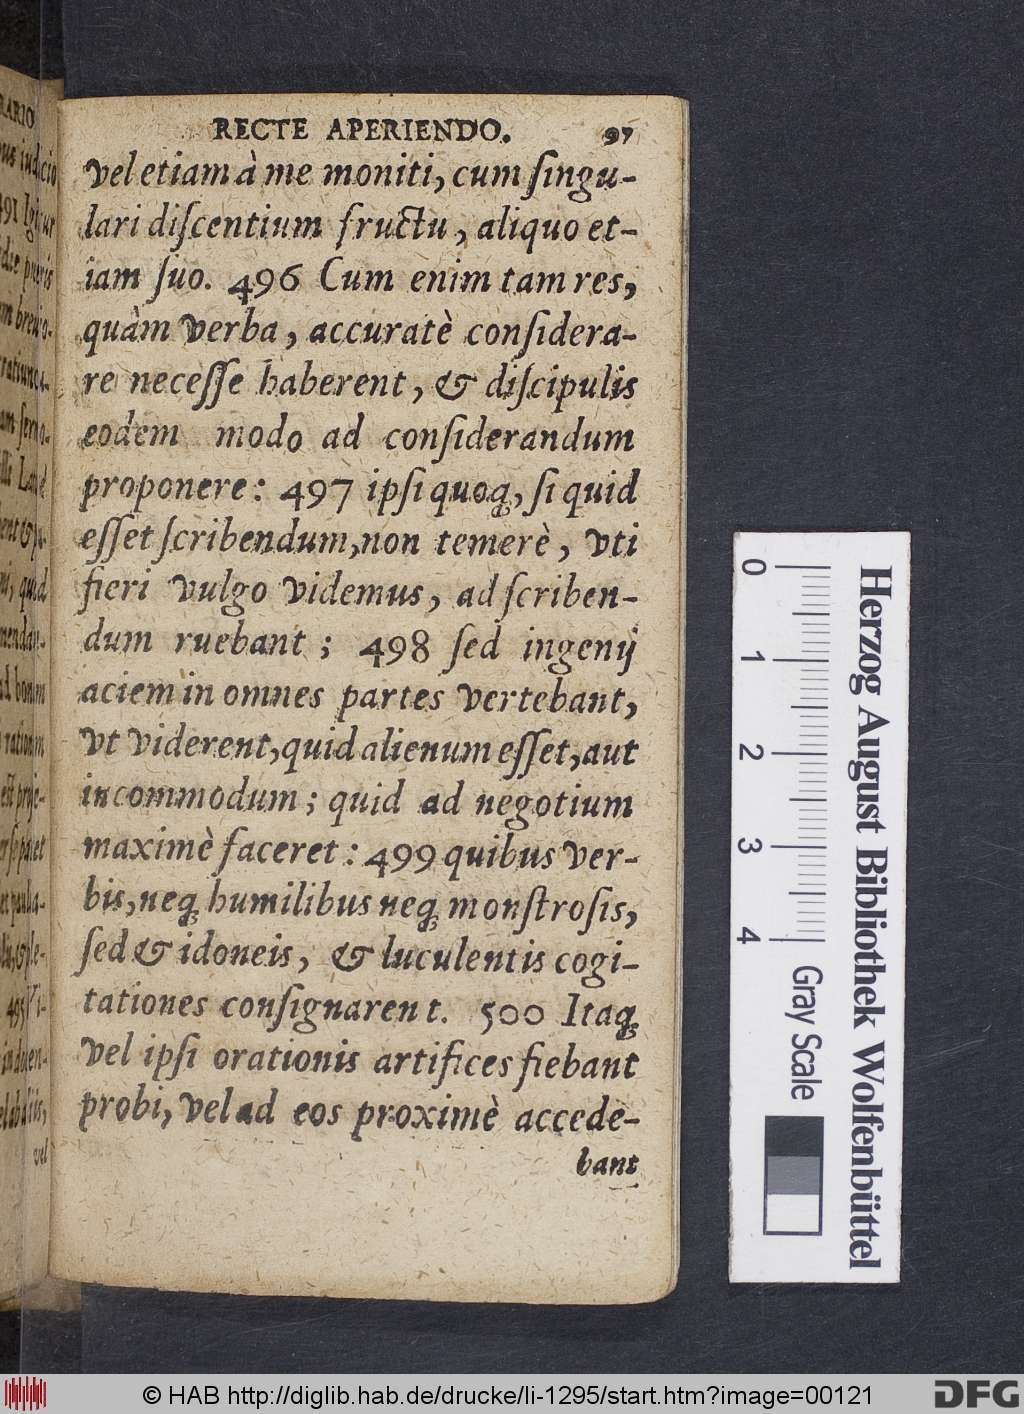 RECTE APERIENDO. 97
vel etiam à me moniti, cum ſingu-
lari diſcentium fructu, aliquo et-
iam ſuo. 496 Cum enim tam res,
quàm verba, accuratè conſidera-
re neceſſe haberent, & diſcipulis
eodem modo ad conſiderandum
proponere: 497 ipſi quoq, ſi quid
eſſet ſcribendum, non temerè, vti
fieri vulgo videmus, ad ſcriben-
dum ruebant; 498 ſed ingenij
aciem in omnes partes vertebant,
vt viderent, quid alienum eſſet, aut
incommodum; quid ad negotium
maximè faceret: 499 quibus ver-
bis, neq humilibus neq monſtroſis,
ſed & idoneis, & luculentis cogi-
tationes conſignarent. 500 Itaq
vel ipſi orationis artifices fiebant
probi, vel ad eos proximè accede-
bant
0
1
2
3
4
Gray Scale
Herzog August Bibliothek Wolfenbüttel
© HAB http://diglib.hab.de/drucke/li-1295/start.htm?image=00121
DFG